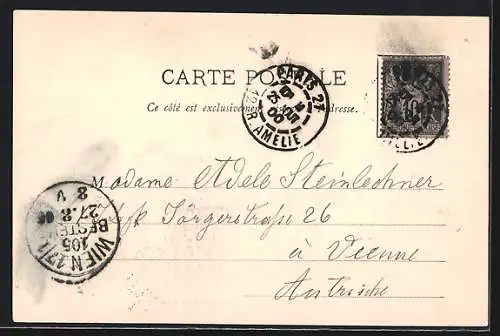 CARTE POSTALE
Ce côté est exclusivement à l'adresse.
PARIS 27
R. AMELIE
Madame Adele Steinlechner
Jörgerstraße 26
à Vienne
Autriche
WIEN 17/1
BESTELLT
105
27.8.00
8 V